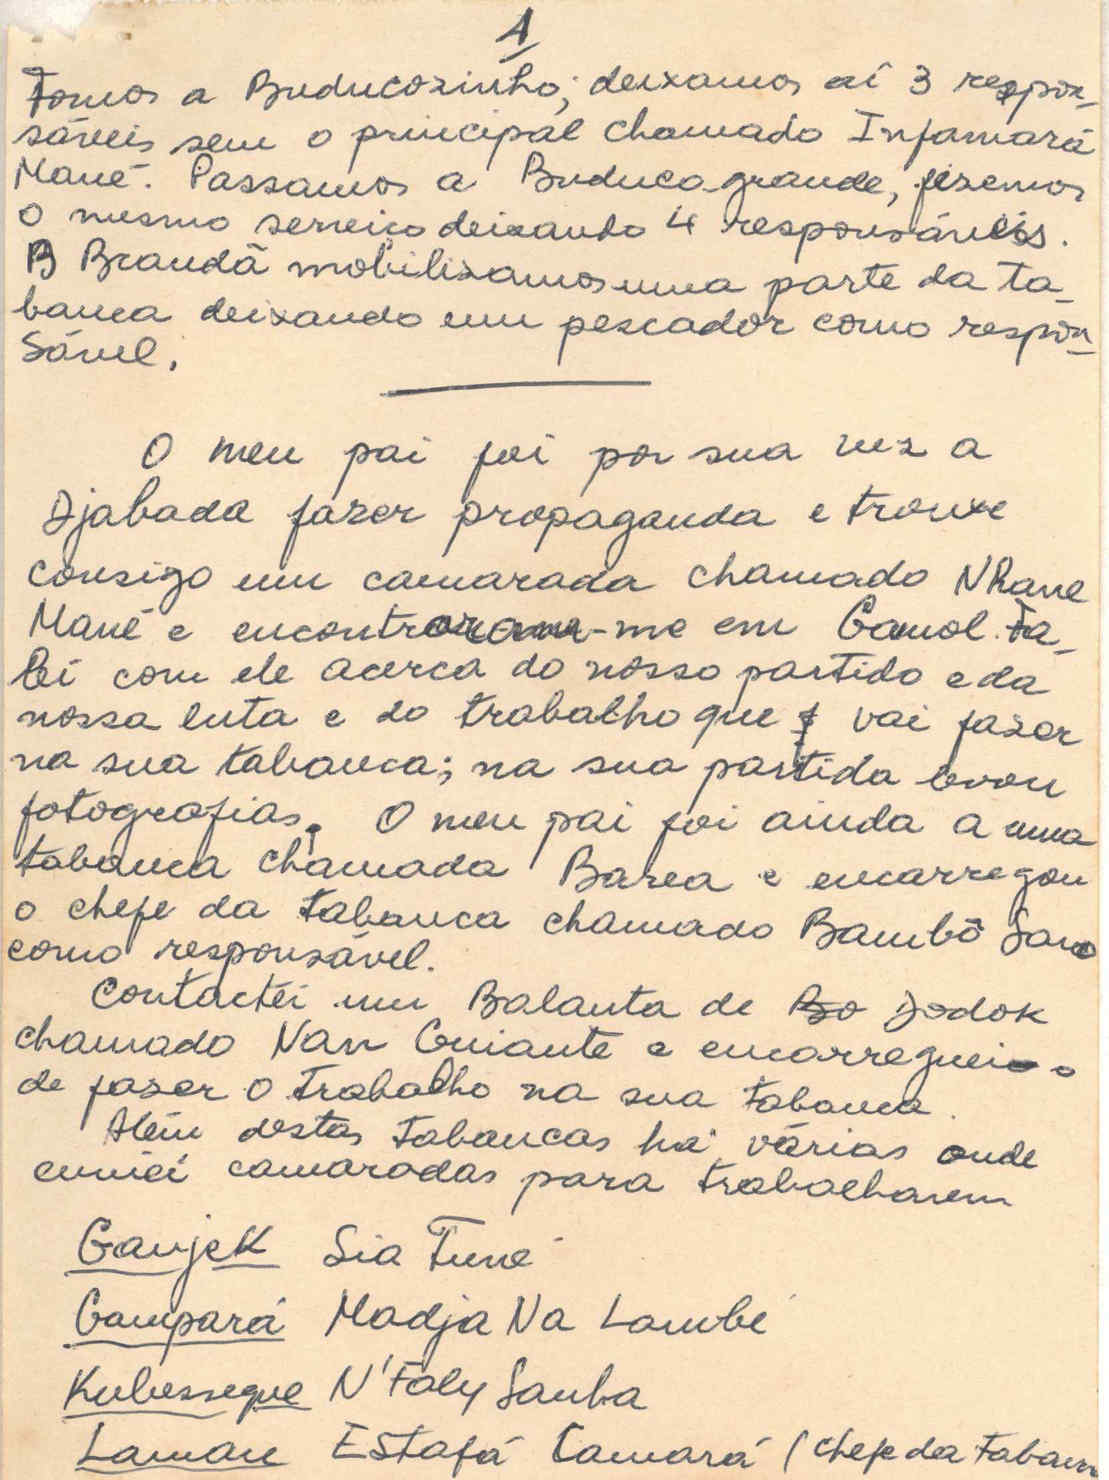 1
Fomos a Buducozinho; deixamos aí 3 respon-
sáveis sem o principal chamado Infamará
Mané. Passamos a Buduco-grande, fizemos
o mesmo serviço deixando 4 responsáveis.
B Brandã mobilizamos uma parte da ta-
banca deixando um pescador como respon-
sável.
O meu pai foi por sua vez a
Djabada fazer propaganda e trouxe
consigo um camarada chamado
Mané e encontraram-me em Gamol. Fa-
lei com ele acerca do nosso partido e da
nossa luta e do trabalho que vai fazer
na sua tabanca; na sua partida levou
fotografias. O meu pai foi ainda a uma
tabanca chamada e encarregou
o chefe da tabanca chamado Bambô Sano
como responsável.
Contactei um Balanta de Jodok
chamado Nan Guiante e encarreguei-o
de fazer o trabalho na sua tabanca.
Além destas tabancas há várias onde
enviei camaradas para trabalharem
Ganjek Sia Turé
Gampará Madja Na Lambé
Kubessegue N'Faly Sanha
Laman Estafá Camará (chefe da Taban